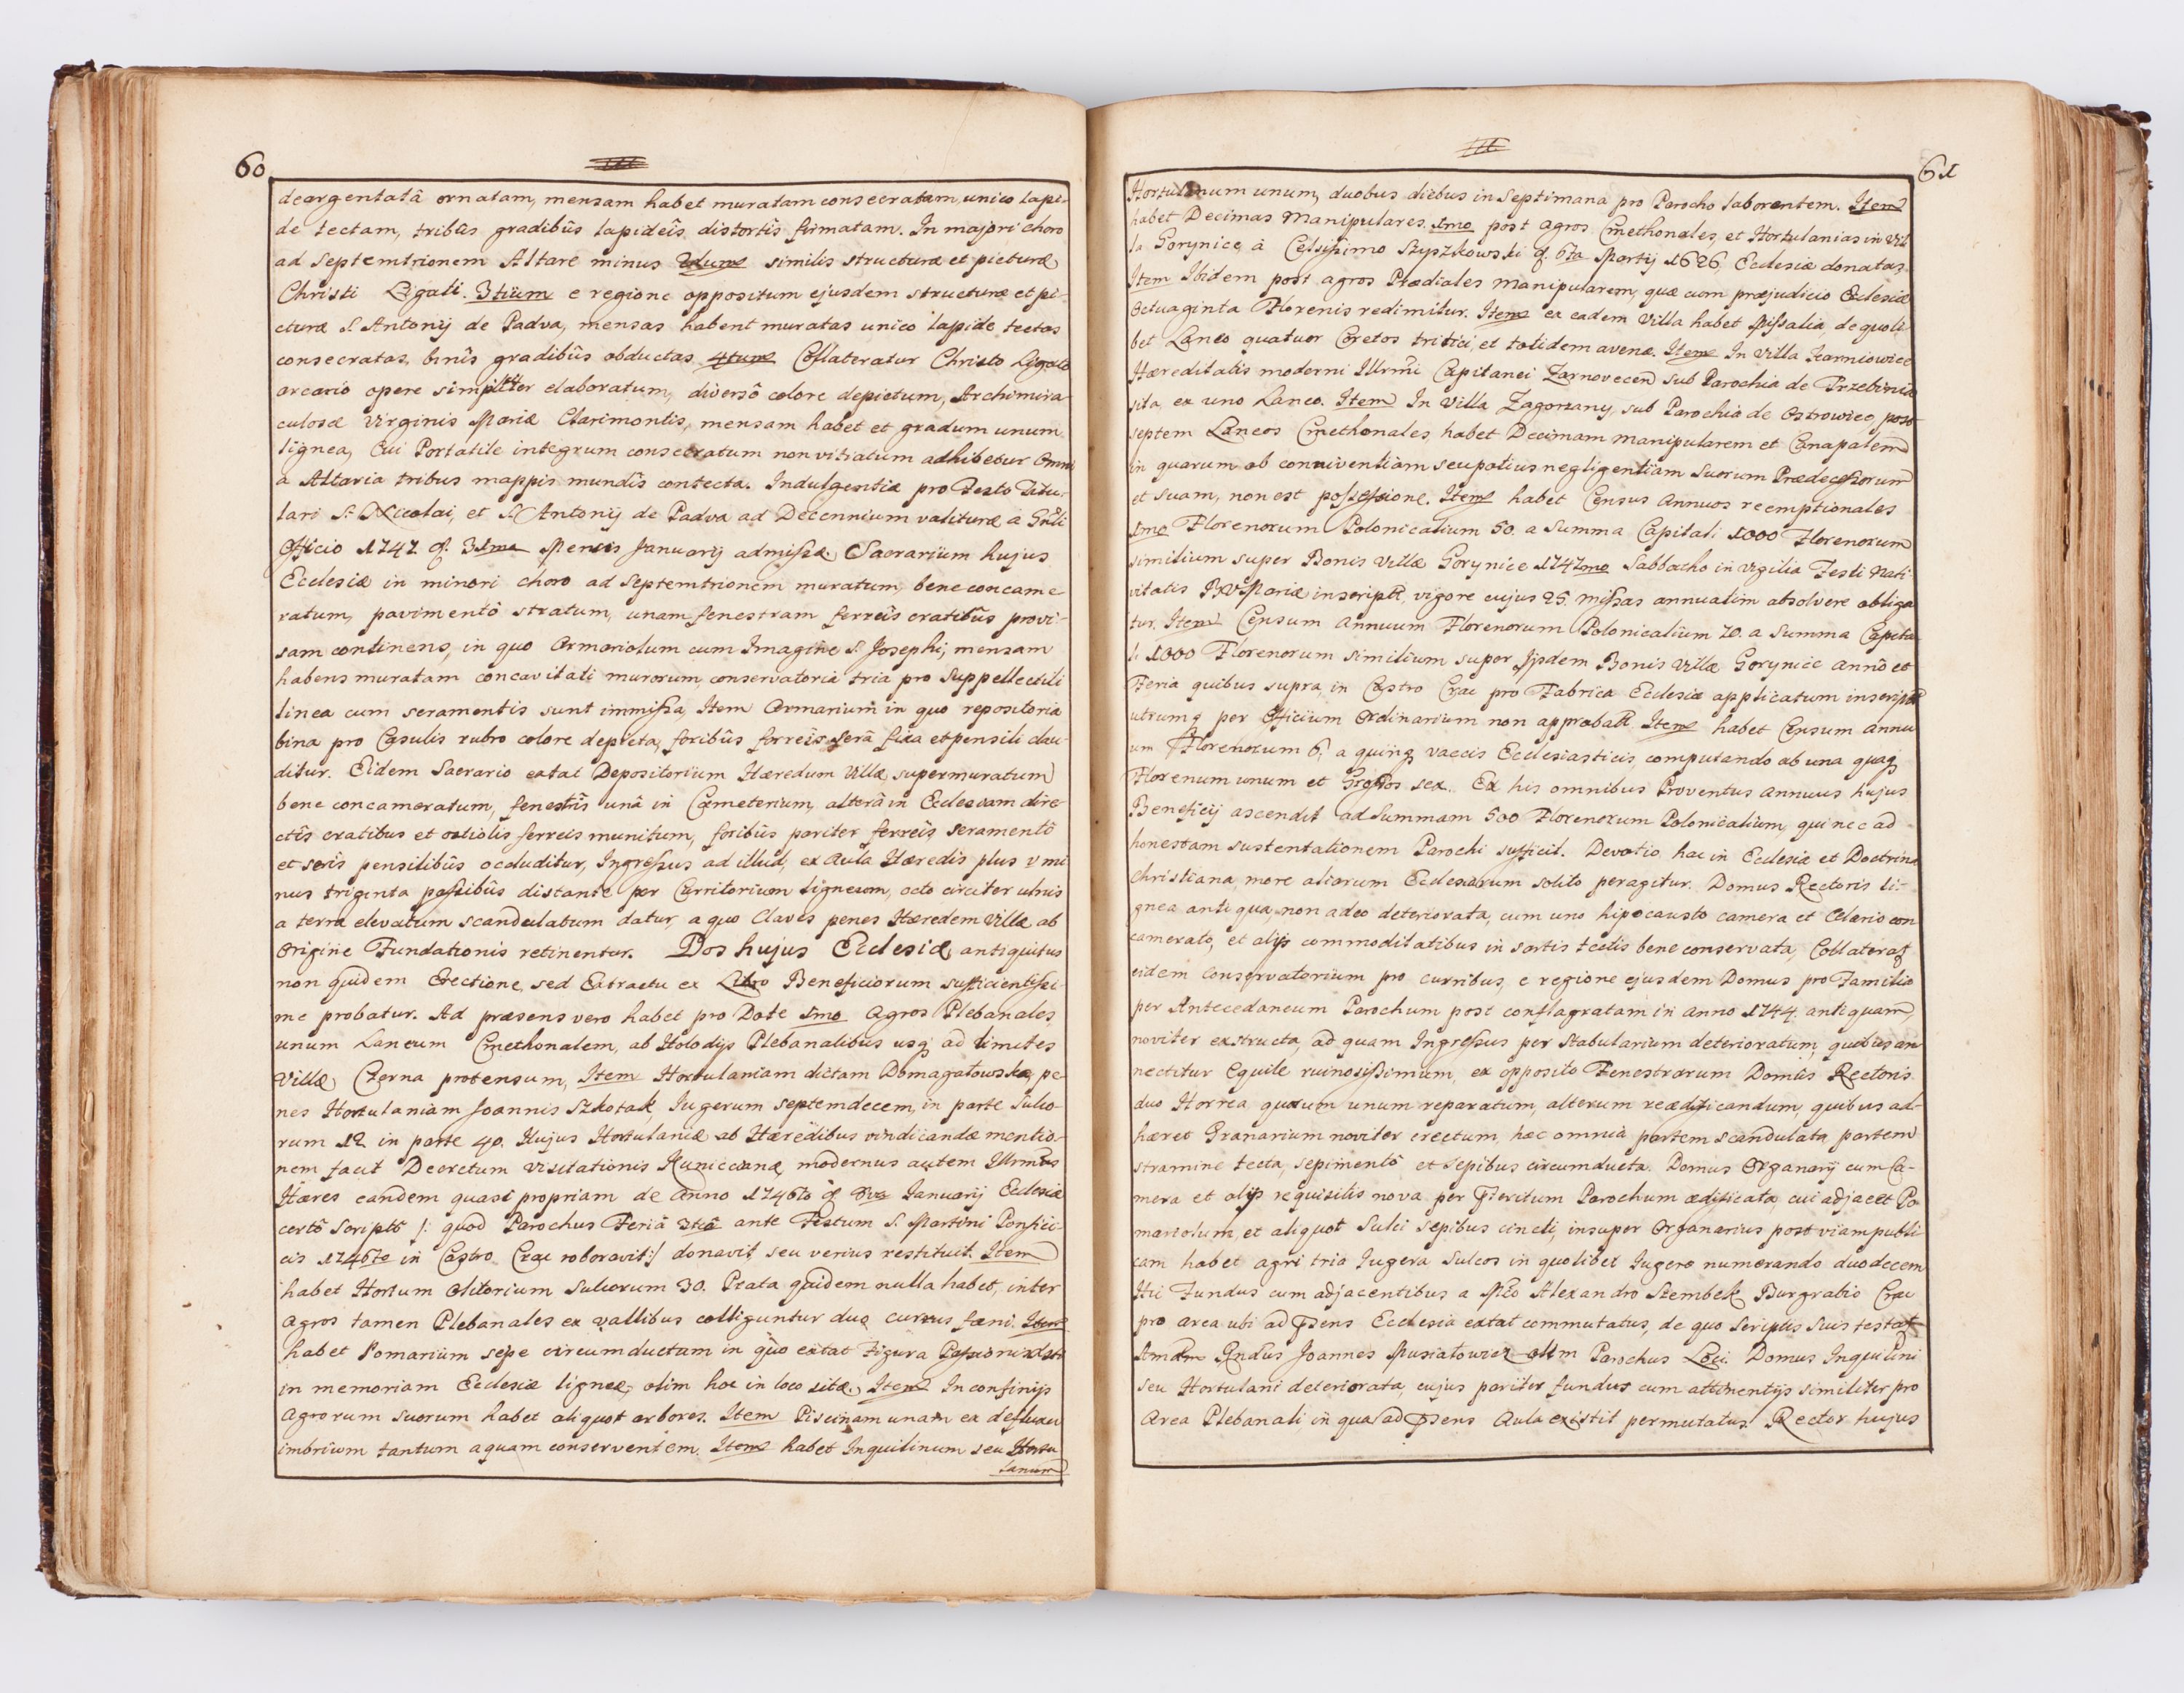 60
deargentatâ ornatam, mensam habet muratam consecratam, unico lapi-
de tectam, tribûs gradibûs lapideîs distortîs firmatam. In majori choro
ad Septemtrionem Altare minus 2dum similis structuræ et picturæ
Christi Ligati. 3tium e regione oppositum ejusdem structuræ et pi-
cturæ S. Antonij de Padva, mensas habent muratas unico lapide tectas
consecratas, binîs gradibûs obductas. 4tum Collateratur Christo Ligato
arcario opere simpliter elaboratum, diversô colore depictum, Archimira
culosæ Virginis Mariæ Clarimontis, mensam habet et gradum unum
lignea, Cui Portatile integrum consecratum non vitiatum adhibetur Omni
a Altaria tribus mappis mundîs contecta. Indulgentiæ pro Festo Titu-
lari S. Nicolai, et S. Antonij de Padva ad Decennium valituræ a Gnli
Officio 1747 d. 31ma Mensis Januarij admissæ. Sacrarium hujus
Ecclesiæ in minori choro ad Septemtrionem muratum, bene concame-
ratum, pavimentô stratum, unam fenestram ferreîs cratibûs provi-
sam continens, in quo Armariolum cum Imagine S. Josephi, mensam
habens muratam concavitati murorum, conservatoria tria pro Suppellectili
linea cum seramentis sunt immissa, Item Armarium in quo repositoria
bina pro Casulis rubro colore depicta, foribûs ferreis serâ fixa et pensili clau-
ditur. Eidem Sacrario extat Depositorium Hæredum Villæ supermuratum
bene concameratum, fenestrîs unâ in Cæmeterium, alterâ in Ecclesiam dire-
ctîs cratibus et ostiolis ferreis munitum, foribûs pariter ferreîs seramentô
et serîs pensilibûs occluditur, Ingressus ad illud, ex Aula Hæredis plus v mi
nus triginta passibûs distante per Curritorium ligneum, octo circiter ulnis
a terra elevatum scandulatum datur, a quo Claves penes Hæredem Villæ ab
Origine Fundationis retinentur. Dos hujus Ecclesiæ antiquitus
non quidem Erectione, sed Extractu ex Libro Beneficiorum sufficientissi-
me probatur. Ad præsens vero habet pro Dote 1mo Agros Plebanales
unum Laneum Cmethonalem, ab Holodijs Plebanalibus usq ad limites
Villæ Czerna protensum, Item Hortulaniam dictam Domagatowska, pe
nes Hortulaniam Joannis Szkotak, Jugerum septemdecem, in parte Sulco-
rum 12 in parte 40. Hujus Hortulaniæ ab Hæredibus vindicandæ mentio-
nem facit Decretum Visitationis Kunicianæ, modernus autem Illrmus
Hæres eandem quasi propriam de Anno 1746to d. 8va Januarij Ecclesiæ
certô Scriptô /: quod Parochus Feriâ 3tiâ ante Festum S. Martini Pontifi-
cis 1746to in Castro Crac roboravit :/ donavit, seu verius restituit. Item
habet Hortum Olitorium Sulcorum 30. Prata quidem nulla habet, inter
Agros tamen Plebanales ex vallibus colliguntur duo currus fæni. Item
habet Pomarium sepe circumductam in quo extat Figura
in memoriam Ecclesiæ ligneæ, olim hoc in loco sitæ. Item In confinijs
Agrorum suorum habet aliquot arbores. Item Piscinam unam ex defluxu
imbrium tantum aquam conservantem. Item habet Inquilinum seu Hortu
lanum
61
Hortulanum unum, duobus diebus in Septimana pro Parocho laborantem. Item
habet Decimas Manipulares. 1mo post Agros Cmethonales, et Hortulanias in Vil
la Gorynice, à Celsissimo Szyszkowski d. 6ta Martij 1626, Ecclesiæ donatas.
Item Ibidem post Agros Prædiales Manipularem, quæ cum præjudicio Ecclesiæ
Octuaginta Florenis redimitur. Item ex eadem Villa habet Missalia, de quoli-
bet Laneo quatuor Coretos tritici, et totidem avenæ. Item In Villa
Hæreditatis moderni Illrmi Capitanei Zarnovecen sub Parochia de Trzebinia
sita, ex uno Laneo. Item In Villa Zagorzany, sub Parochia de Ostrowiec, post
septem Laneos Cmethonales, habet Decimam Manipularem et Canapalem
in quarum ob conniventiam seu potius negligentiam Suorum Prædecessorum
et suam, non est possessione. Item habet Census Annuos reemptionales
1mo Florenorum Polonicalium 50. a Summa Capitali 1000 Florenorum
similium super Bonis Villæ Gorynice 1747mo Sabbatho in Vigilia Festi Nati
vitatis BVMariæ inscriptâ, vigore cujus 25. Missas annuatim absolvere obliga
tur. Item Censum Annuum Florenorum Polonicalium 70. a Summa Capita
li 1000 Florenorum similium super ijsdem Bonis Villæ Gorynice annô et
Feria quibus supra, in Castro Crac pro Fabrica Ecclesiæ applicatum inscriptâ
utrumq per Officium Ordinarium non approbatâ. Item habet Censum Annu
um Florenorum 6, a quinq vaccis Ecclesiasticis, computando ab una quaq
Florenum unum et Grossos sex. Ex his omnibus Proventus Annuus hujus
Beneficij ascendit ad Summam 500 Florenorum Polonicalium, qui nec ad
honestam sustentationem Parochi sufficit. Devotio, hac in Ecclesia et Doctrina
Christiana, more aliarum Ecclesiarum solito peragitur. Domus Rectoris li-
gnea antiqua, non adeo deteriorata, cum uno hipocausto camera et Celario con
camerato, et alijs commoditatibus in sartis tectis bene conservata, Collateraq
eidem Conservatorium pro curribus, e regione ejusdem Domus pro Familia
per Antecedaneum Parochum post conflagratam in Anno 1744. antiquam,
noviter exstructa, ad quam Ingressus per Stabularium deterioratum, quibus an
nectitur Equile ruinosissimum, ex opposito Fenestrarum Domûs Rectoris
duo Horrea, quorum unum reparatum, alterum reædificandum, quibus ad-
hæret Granarium noviter erectum, hæc omnia partem scandulata partem
stramine tecta, sepimentô et sepibus circumducta. Domus Organarij cum Ca-
mera et alijs requisitis nova per Pteritum Parochum ædificata, cui adjacet Po
mariolum, et aliquot Sulci sepibus cincti, insuper Organarius post viam publi
cam habet agri tria Jugera, Sulcos in quolibet Jugero numerando duodecem
Hic Fundus cum adjacentibus a Mfico Alexandro Stembek Burgrabio Crac
pro area ubi ad Psens Ecclesia extat commutatus, de quo Scriptis suis testat
Amdm Rndus Joannes Musiatowicz olim Parochus Loci. Domus Inquilini
seu Hortulani deteriorata, cujus pariter fundus cum attinentijs similiter pro
Area Plebanali, in qua ad Psens Aula existit permutatus. Rector hujus